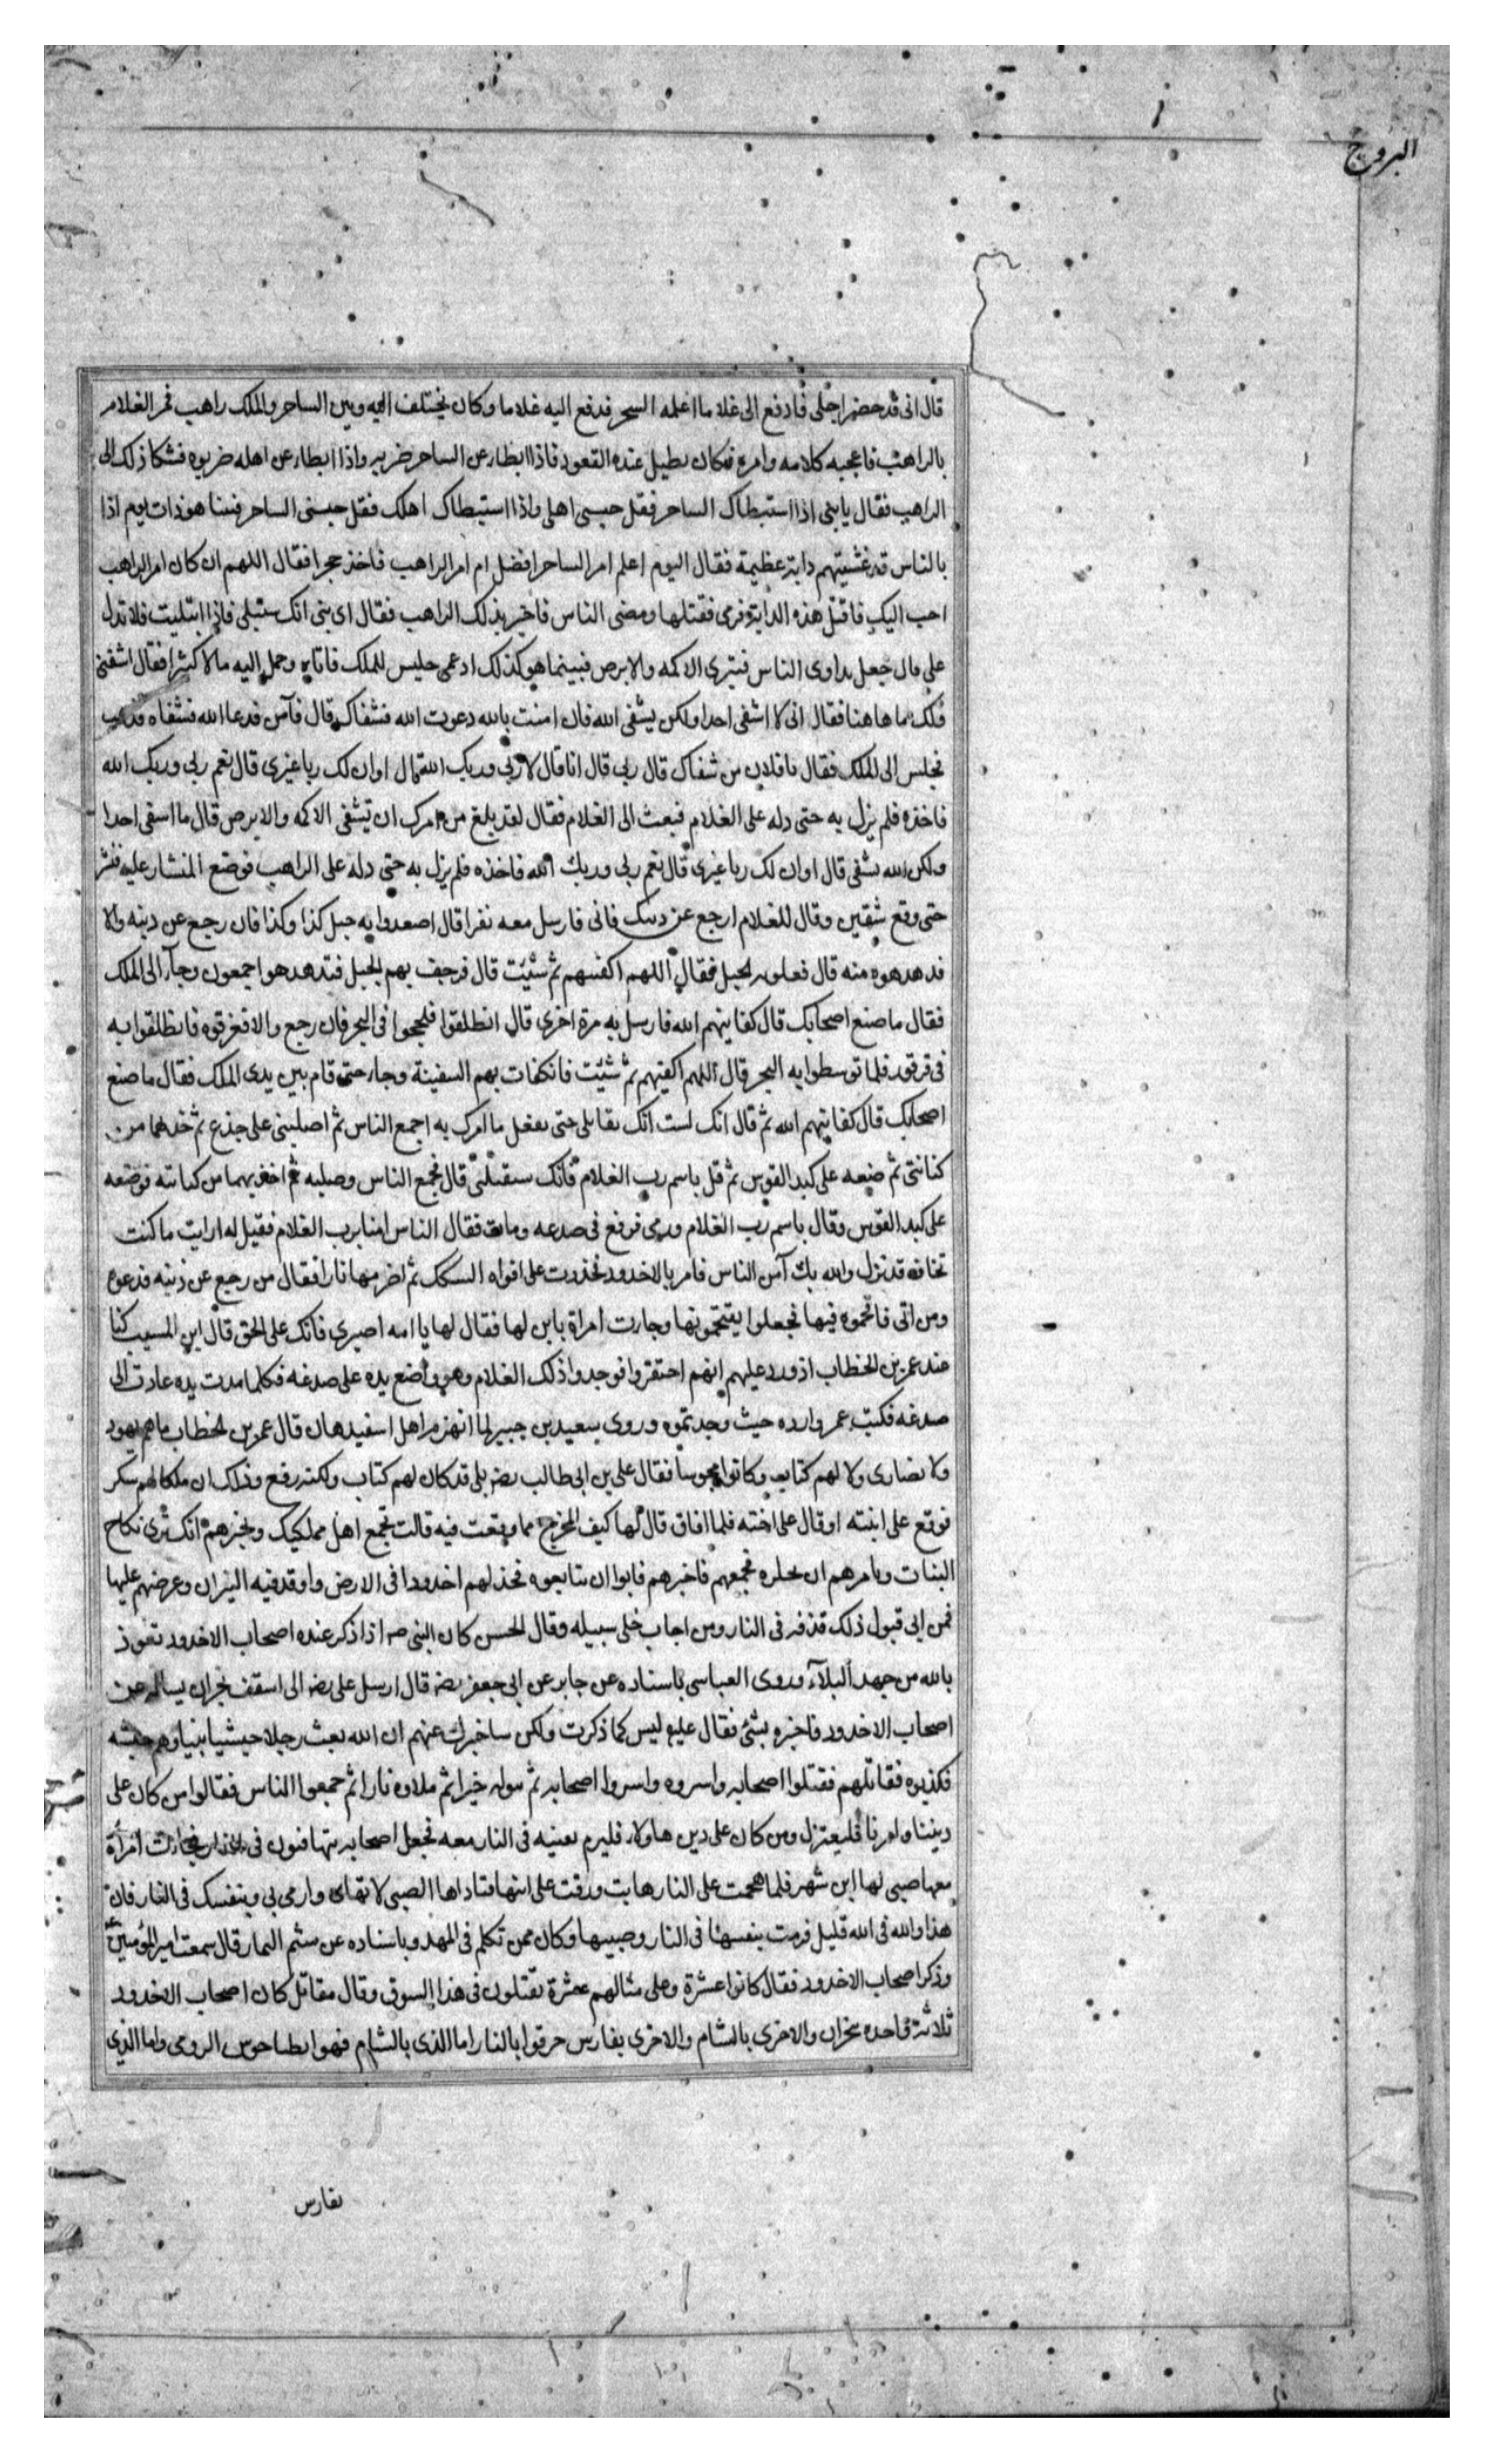 البروج
قال انى قد حضر اجلى فادفع الى غلاما اعلمه السحر فدفع اليه غلاما وكان يختلف اليه وبين الساحر والملك راهب فمر الغلام
بالراهب فاعجبه كلامه وامره فكان يطيل عنده القعود فاذا ابطا عن الساحر ضربه واذا ابطا عن اهله ضربوه فشكا ذلك الى
الراهب فقال يا بنى اذا استبطاك الساحر فقل حبسنى اهلى واذا استبطاك اهلك فقل حبسنى الساحر فبينا هو ذات يوم اذا
بالناس قد غشيتهم دابة عظيمة فقال اليوم اعلم امر الساحر افضل ام امر الراهب فاخذ حجرا فقال اللهم ان كان امر الراهب
احب اليك فاقتل هذه الدابة فرمى فقتلها ومضى الناس فاخبر بذلك الراهب فقال اى بنى انك ستبلى فاذا ابتليت فلا تدل
على قال جعل يداوى الناس فيبرى الاكمه والابرص فبينما هو كذلك اذ عمى جليس للملك فاتاه وحمل اليه مالا كثيرا فقال اشفنى
فلك ما هاهنا فقال انى لا اشفى احدا ولكن يشفى الله فان امنت بالله دعوت الله فشفاك قال فآمن فدعا الله فشفاه فذهب
فجلس الى الملك فقال يا فلان من شفاك قال ربى قال انا قال لا ربى وربك الله قال اوان لك ربا غيرى قال نعم ربى وربك الله
فاخذه فلم يزل به حتى دله على الغلام فبعث الى الغلام فقال لقد بلغ من امرك ان تشفى الاكمه والابرص قال ما اشفى احدا
ولكن الله يشفى قال اوان لك ربا غيرى قال نعم ربى وربك الله فاخذه فلم يزل به حتى دله على الراهب فوضع المنشار عليه فنشر
حتى وقع شقين وقال للغلام ارجع عن دينك فابى فارسل معه نفرا قال اصعدوا به جبل كذا وكذا فان رجع عن دينه والا
فدهدهوه منه قال فعلوا به الجبل فقال اللهم اكفنيهم بم شئت قال فرجف بهم الجبل فتدهدهوا اجمعون وجآء الى الملك
فقال ما صنع اصحابك قال كفانيهم الله فارسل به مرة اخرى قال انطلقوا فلججوا فى البحر فان رجع والا فغرقوه فانطلقوا به
فى قرقور فلما توسطوا به البحر قال اللهم اكفنيهم بم شئت فانكفات بهم السفينة وجاء حتى قام بين يدى الملك فقال ما صنع
اصحابك قال كفانيهم الله ثم قال انك لست بقاتلى حتى تفعل ما امرك به اجمع الناس ثم اصلبنى على جذع ثم خذ سهما من
كنانتى ثم ضعه على كبد القوس ثم قل باسم رب الغلام فانك ستقتلنى قال فجمع الناس وصلبه ثم اخذ سهما من كنانته فوضعه
على كبد القوس وقال باسم رب الغلام ورمى فوقع فى صدغه ومات فقال الناس امنا برب الغلام فقيل له ارايت ما كنت
تخافه قد نزل والله بك آمن الناس فامر بالاخدود فخددت على افواه السكك ثم اضرمها نارا فقال من رجع عن دينه فدعوه
ومن ابى فاقحموه فيها فجعلوا يقتحمونها وجاءت امراة بابن لها فقال لها يا امه اصبرى فانك على الحق قال ابن المسيب كنا
عند عمر بن الخطاب اذ ورد عليهم انهم احتفروا فوجدوا ذلك الغلام وهو واضع يده على صدغه فكلما مدت يده عادت الى
صدغه فكتب عمر واروه حيث وجدتموه وروى سعيد بن جبير لما انهزم اهل اسفيدهان قال عمر بن الخطاب ما هم يهود
ولا نصارى ولا لهم كتاب وكانوا مجوسا فقال على بن ابى طالب رضه بلى قد كان لهم كتاب ولكنه رفع وذلك ان ملكا لهم سكر
فوقع على ابنته او قال على اخته فلما افاق قال لها كيف المخرج مما وقعت فيه قالت تجمع اهل مملكتك وتخبرهم انك ترى نكاح
البنات وتامرهم ان يحلوه فجمعهم فاخبرهم فابوا ان يتابعوه فخد لهم اخدودا فى الارض واوقد فيه النيران وعرضهم عليها
فمن ابى قبول ذلك قذفه فى النار ومن اجاب خلى سبيله وقال الحسن كان النبى صه اذا ذكر عنده اصحاب الاخدود تعوذ
بالله من جهد البلآء وروى العياسى باسناده عن جابر عن ابى جعفر رضه قال ارسل على رضه الى اسقف نجران يساله عن
اصحاب الاخدود فاخبره بشئ فقال عليه ليس كما ذكرت ولكن ساخبرك عنهم ان الله بعث رجلا حبشيا نبيا وهم حبشه
فكذبوه فقاتلهم فقتلوا اصحابه واسروه واسروا اصحابه ثم بنوا له خيرا ثم ملاوه نارا ثم جمعوا الناس فقالوا من كان على
ديننا وامرنا فليعتزل ومن كان على دين هاولاء فليرم نفسه فى النار معه فجعل اصحابه يتهافتون فى النار فجاءت امرأة
معها صبى لها ابن شهر فلما هجمت على النار هابت ورقت على ابنها فناداها الصبى لا تهابى وارمى بى وبنفسك فى النار فان
هذا والله فى الله قليل فرمت بنفسها فى النار وصبيها وكان ممن تكلم فى المهد وباسناده عن ميثم التمار قال سمعت امير المؤمنين ع
وذكر اصحاب الاخدود فقال كانوا عشرة وعلى مثالهم عشرة يقتلون فى هذا السوق وقال مقاتل كان اصحاب الاخدود
ثلاثة فاحده بنجران والاخرى بالشام والاخرى بفارس حرقوا بالنار اما الذى بالشام فهو انطياحوس الرومى واما الذى
بفارس